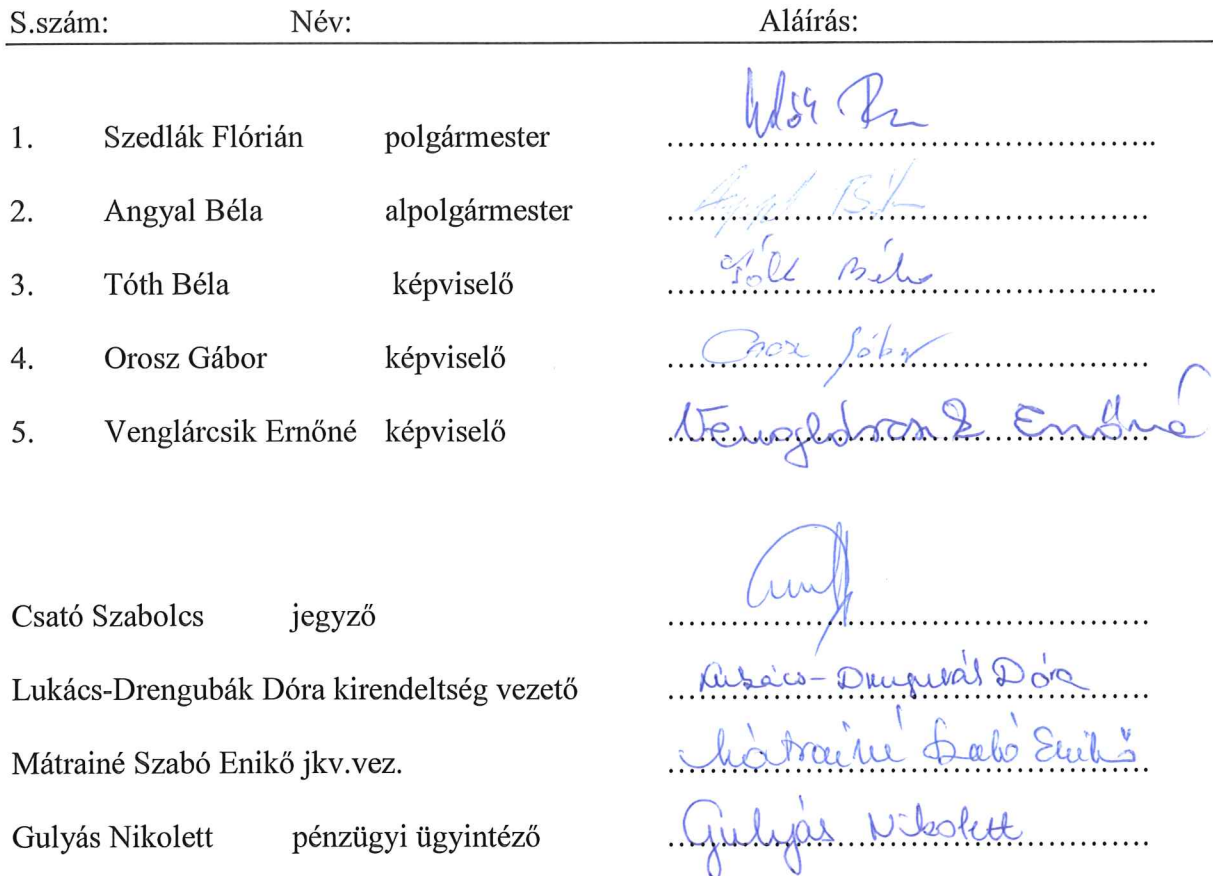 S.szám: Név: Aláírás:
1. Szedlák Flórián polgármester ................................................
2. Angyal Béla alpolgármester Angyal Béla
3. Tóth Béla képviselő Tóth Béla
4. Orosz Gábor képviselő Orosz Gábor
5. Venglárcsik Ernőné képviselő Venglárcsik Ernőné
Csató Szabolcs jegyző ................................................
Lukács-Drengubák Dóra kirendeltség vezető Lukács-Drengubák Dóra
Mátrainé Szabó Enikő jkv.vez. Mátrainé Szabó Enikő
Gulyás Nikolett pénzügyi ügyintéző Gulyás Nikolett